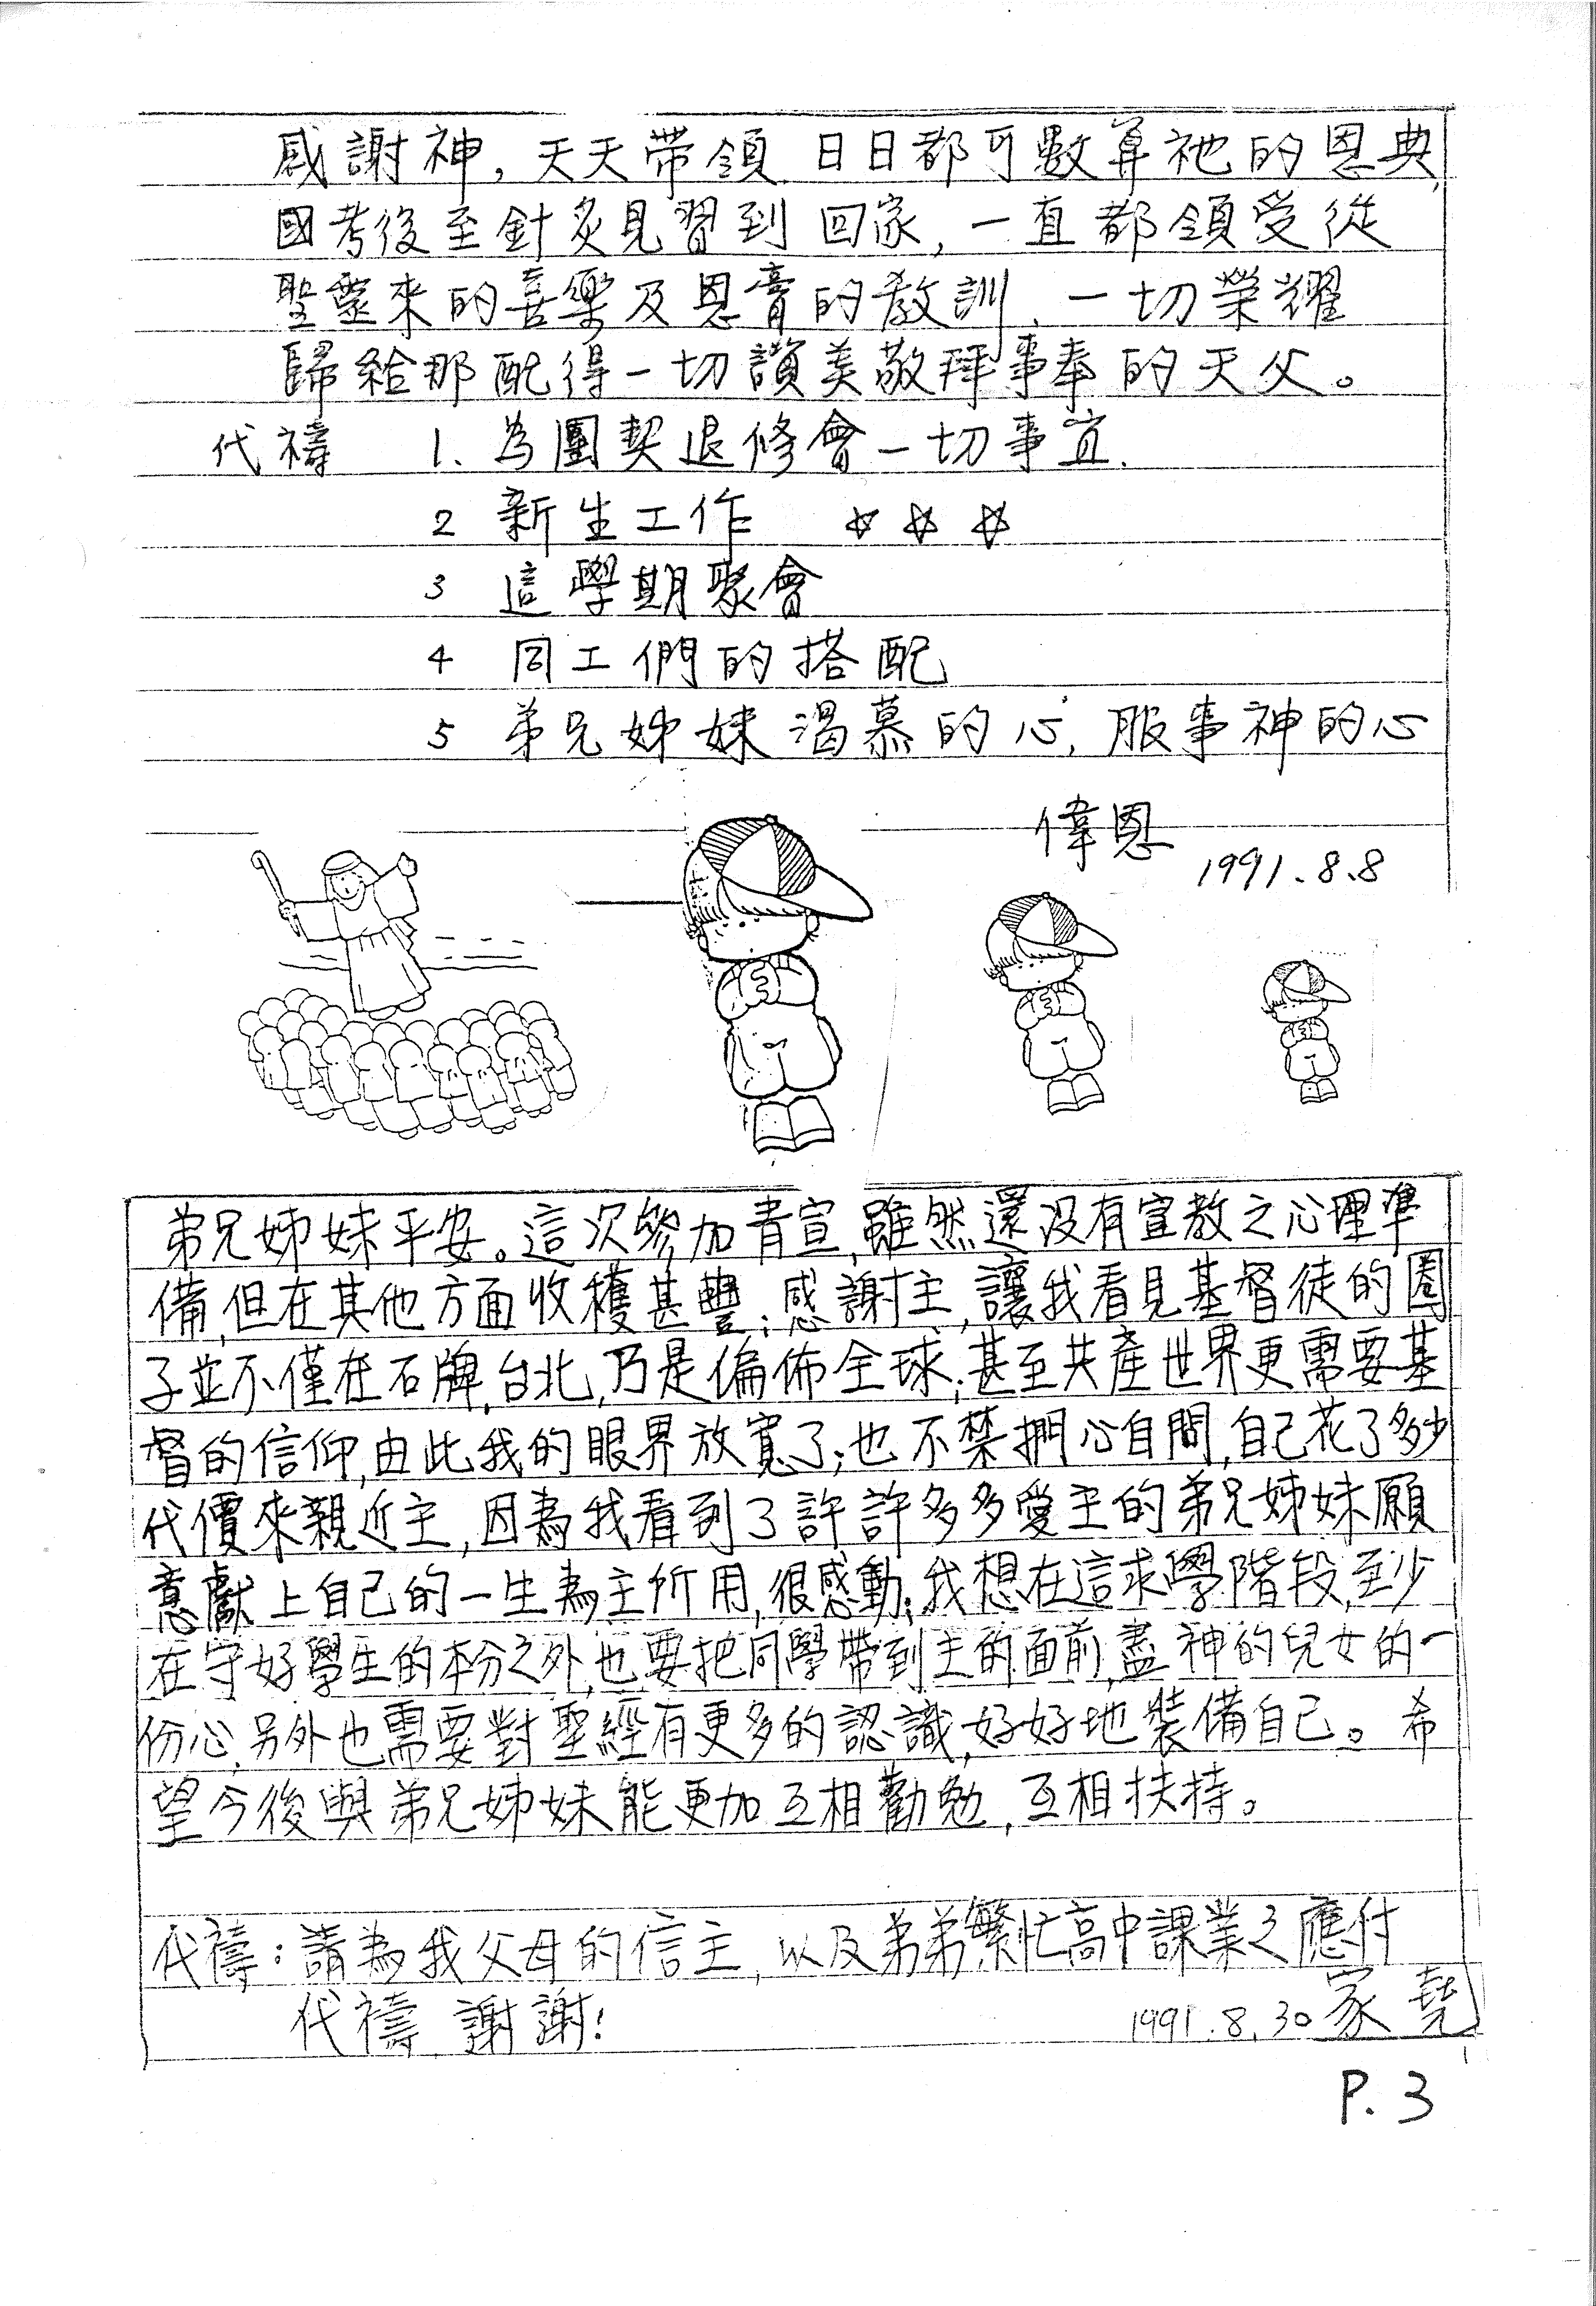 感謝神，天天帶領，日日都可數算祂的恩典，
國考後至針灸見習到回家，一直都領受從
聖靈來的喜樂及恩膏的教訓，一切榮耀
歸給那配得一切讚美敬拜事奉的天父。
代禱 1、為團契退修會一切事宜．
2 新生工作 ☆☆☆
3 這學期聚會
4 同工們的搭配
5 弟兄姊妹渴慕的心，服事神的心
偉恩 1991.8.8
弟兄姊妹平安。這次參加青宣，雖然還沒有宣教之心理準
備，但在其他方面收穫甚豐；感謝主，讓我看見基督徒的圈
子並不僅在石牌，台北，乃是偏佈全球；甚至共產世界更需要基
督的信仰，由此我的眼界放寬了；也不禁捫心自問，自己花了多少
代價來親近主，因為我看到了許許多多愛主的弟兄姊妹願
意獻上自己的一生為主所用，很感動；我想在這求學階段，至少
在守好學生的本分之外，也要把同學帶到主的面前，盡神的兒女的一
份心，另外也需要對聖經有更多的認識，好好地裝備自己。希
望今後與弟兄姊妹能更加互相勸勉，互相扶持。
代禱：請為我父母的信主，以及弟弟繁忙高中課業之應付
代禱，謝謝！ 1991.8.30 家堯
P.3